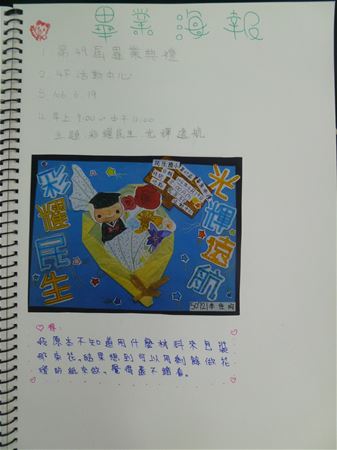 畢業海報
1. 第49屆畢業典禮
2. 4F活動中心
3. 106.6.19
4. 早上9:00~中午11:00
主題:彩耀民生.光輝遠航
彩耀民生
光輝遠航
心得:
我原本不知道用什麼材料來包裝
那束花,結果想到可以用剩餘做花
燈的紙來做,覺得還不錯看。